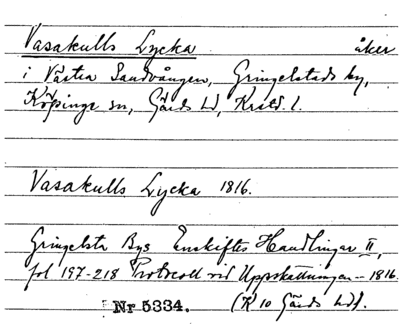 Vasakulls Lycka åker
i Västra Sandvången, Gringelstads by,
Köpinge sn, Gärds hd, Kristd. l.
Vasakulls Lycka 1816.
Gringelsta Bys Enskiftes Handlingar II,
fol 197-218 Protocoll vid Uppskattningen - 1816.
Nr 5334. (K 10 Gärds hd).